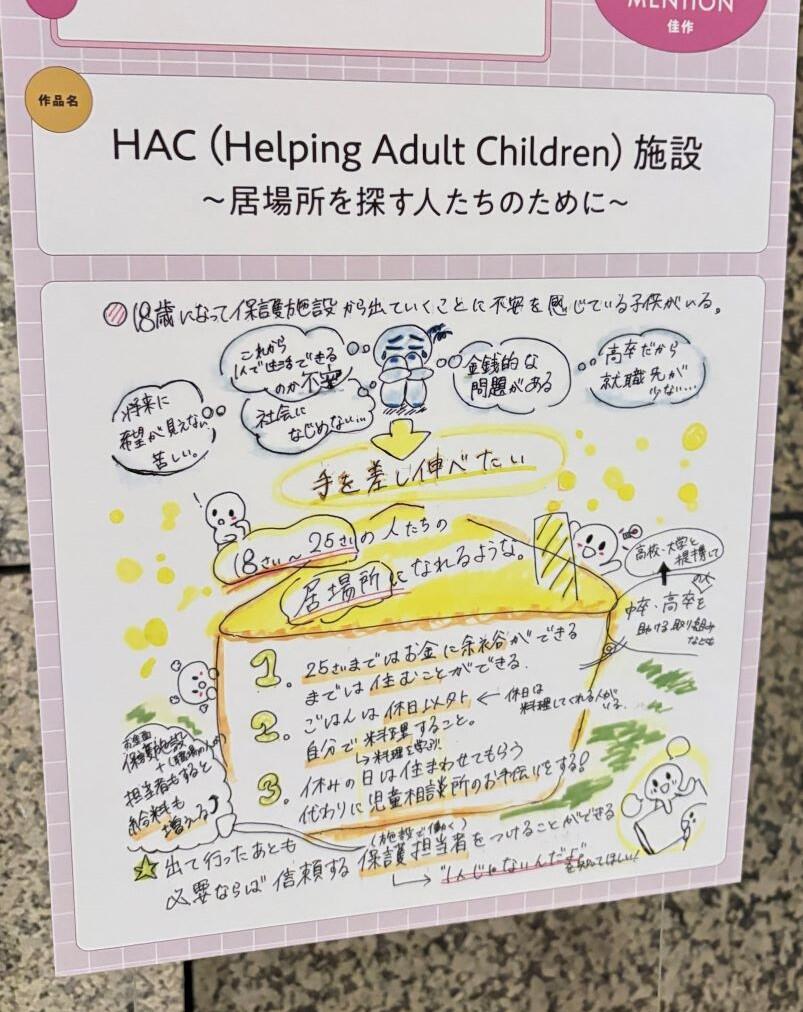 MENTION
佳作
作品名
HAC (Helping Adult Children) 施設
～居場所を探す人たちのために～
18歳になって保護施設から出ていくことに不安を感じている子供がいる。
これから
1人で生活できる
のか不安
金銭的な
問題がある
高卒だから
就職先が
少ない…
将来に
希望が見えない
苦しい。
社会に
なじめない…
手を差し伸べたい
18さい～25さいの人たちの
居場所になれるような。
高校・大学と
提携して
中卒・高卒を
助ける取り組み
なども
1. 25さいまではお金に余裕ができる
までは住むことができる.
2. ごはんは休日以外 ← 休日は
料理してくれる人が
いる.
自分で料理すること。
↳料理を学ぶ!
3. 休みの日は住まわせてもらう
代わりに児童相談所のお手伝いをする!
保護施設
担当者もすると
給料も
増える
☆ 出て行ったあとも
(施設で働く)
必要ならば信頼する保護担当者をつけることができる
↳"1人じゃないんだよ"を知ってほしい!